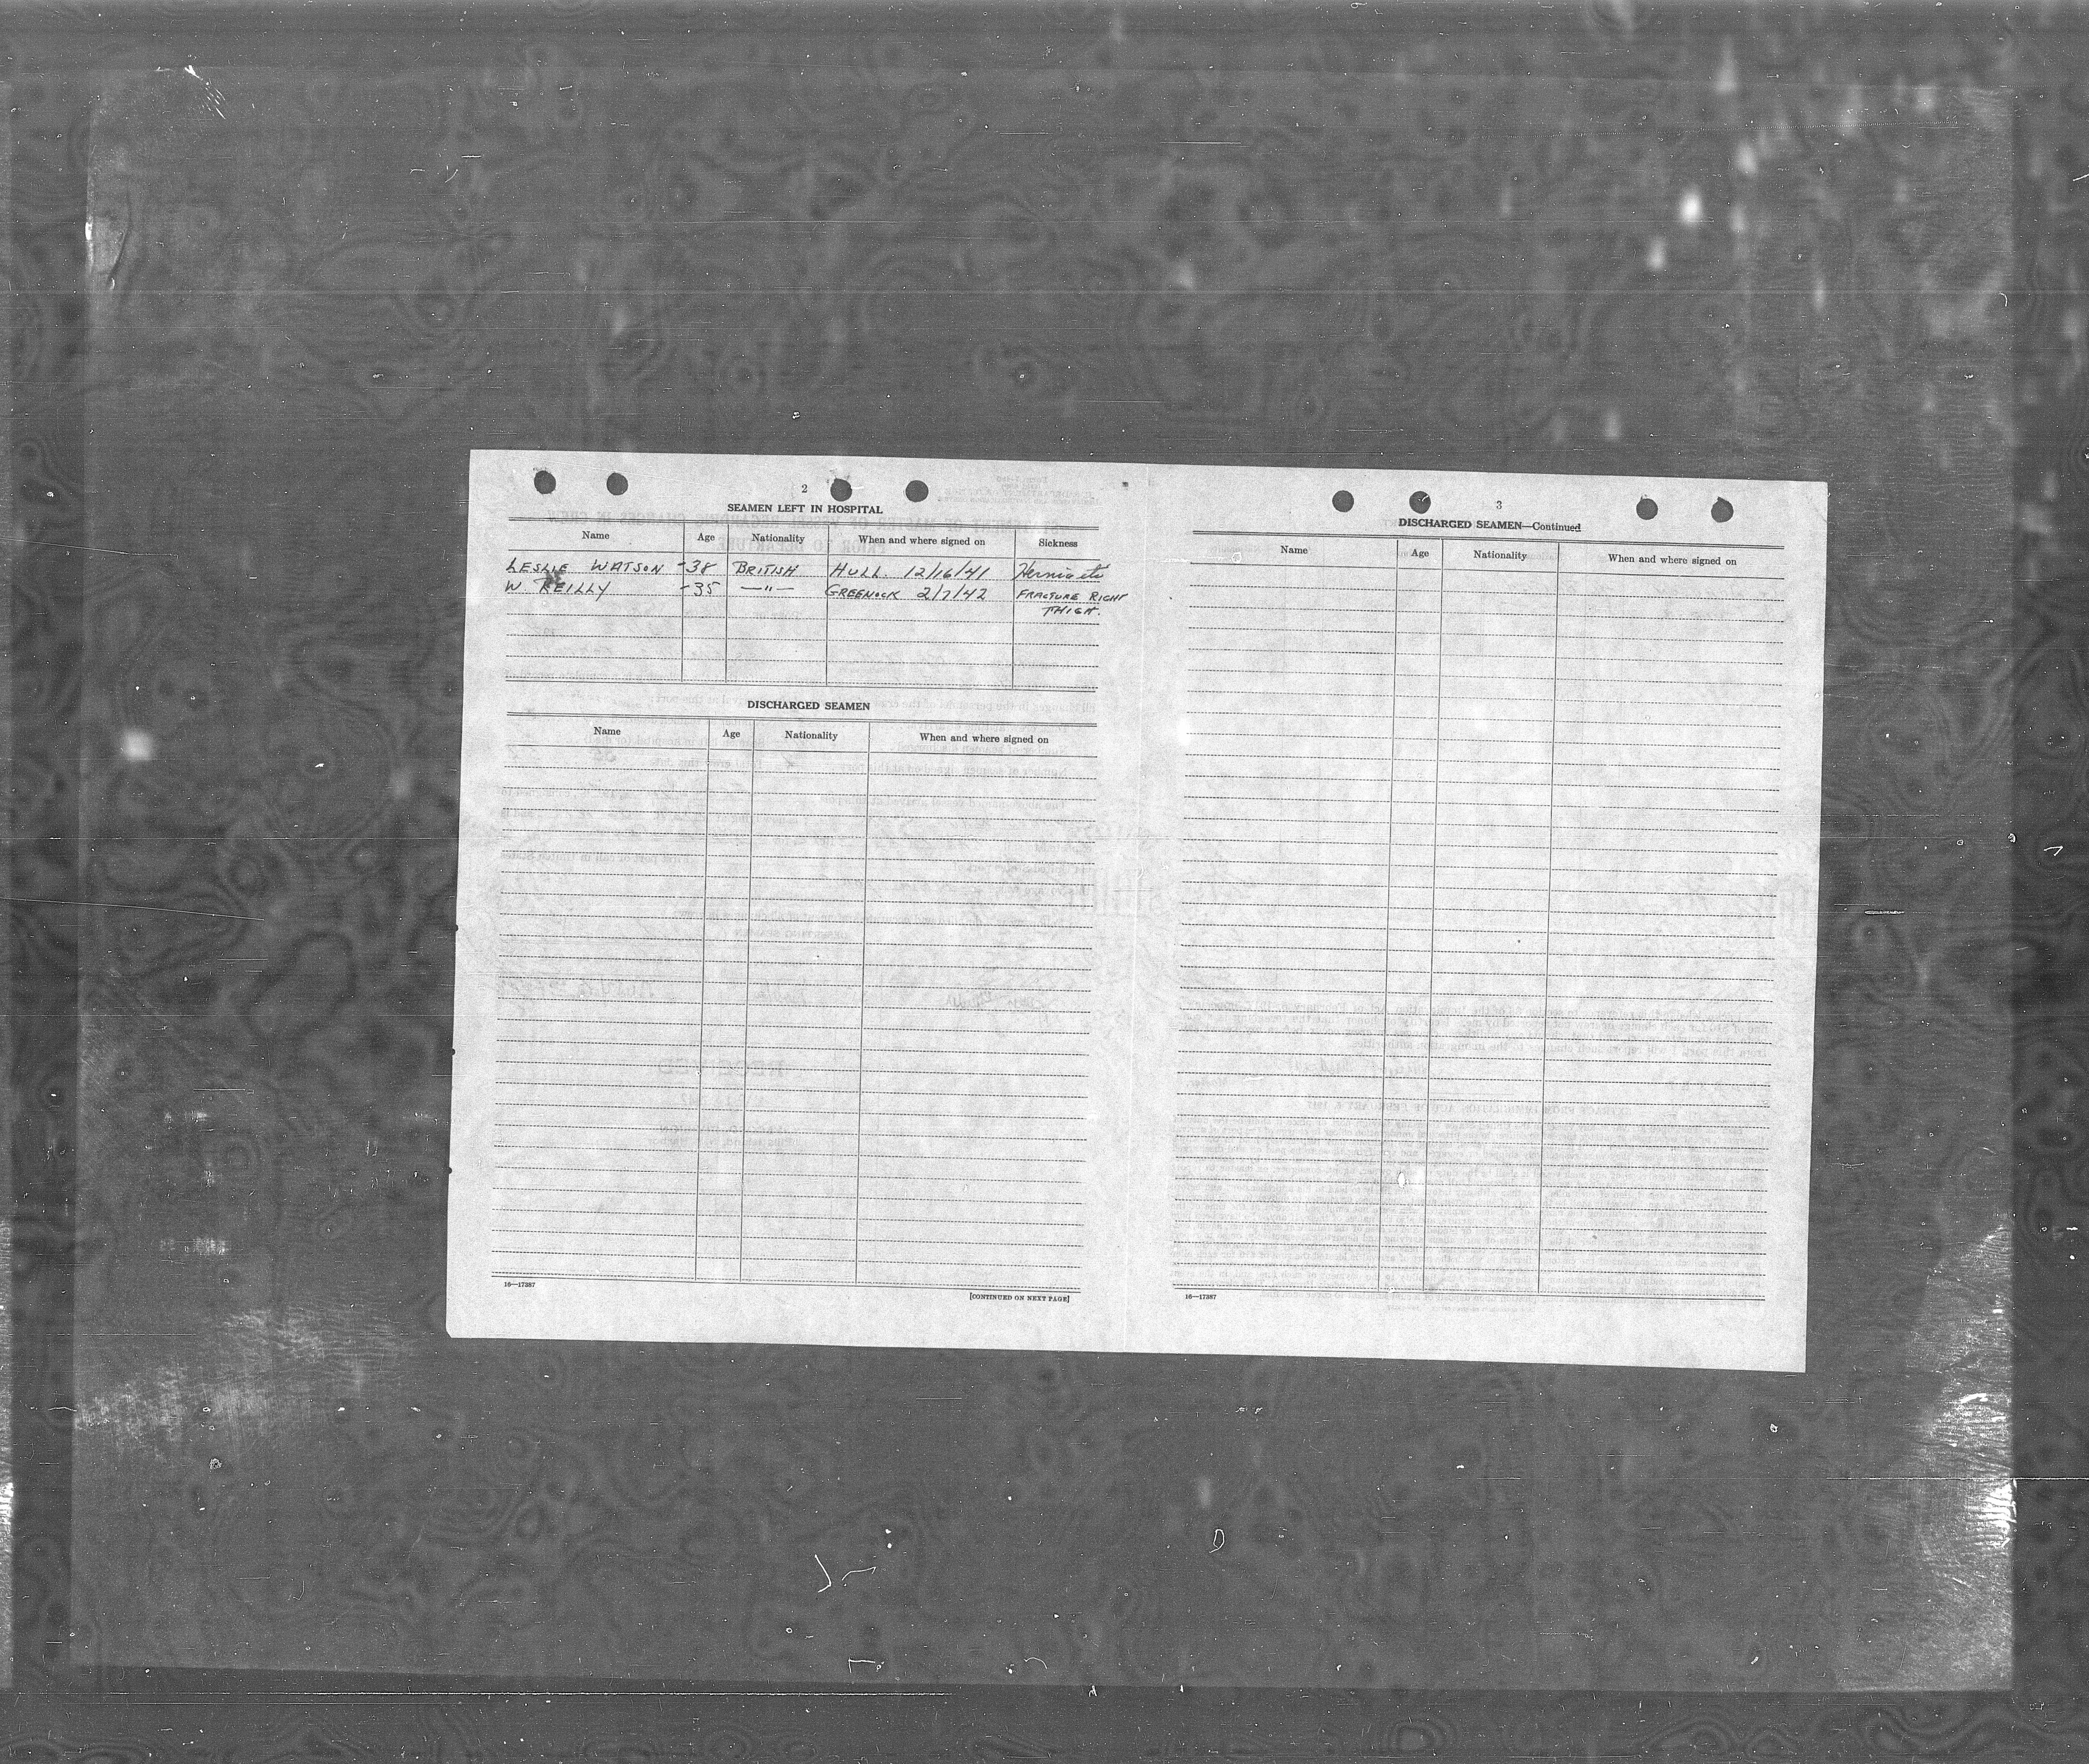 2
SEAMEN LEFT IN HOSPITAL
Name Age Nationality When and where signed on Sickness
LESLIE WATSON -38 BRITISH HULL. 12/16/41 Hernia etc
W REILLY -35 —"— GREENOCK 2/7/42 FRACTURE RIGHT
THIGH.
DISCHARGED SEAMEN
Name Age Nationality When and where signed on
16—17387
[CONTINUED ON NEXT PAGE]
3
DISCHARGED SEAMEN—Continued
Name Age Nationality When and where signed on
16—17387